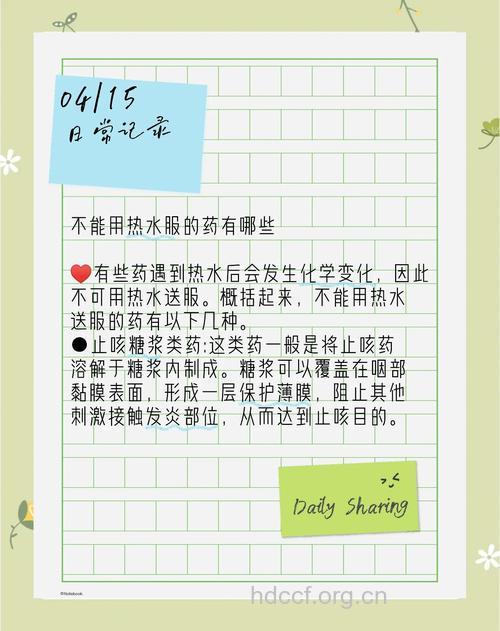 04/15
日常记录
不能用热水服的药有哪些
❤️有些药遇到热水后会发生化学变化，因此
不可用热水送服。概括起来，不能用热水
送服的药有以下几种。
●止咳糖浆类药:这类药一般是将止咳药
溶解于糖浆内制成。糖浆可以覆盖在咽部
黏膜表面，形成一层保护薄膜，阻止其他
刺激接触发炎部位，从而达到止咳目的。
Daily Sharing
©Notebook
hdccf.org.cn